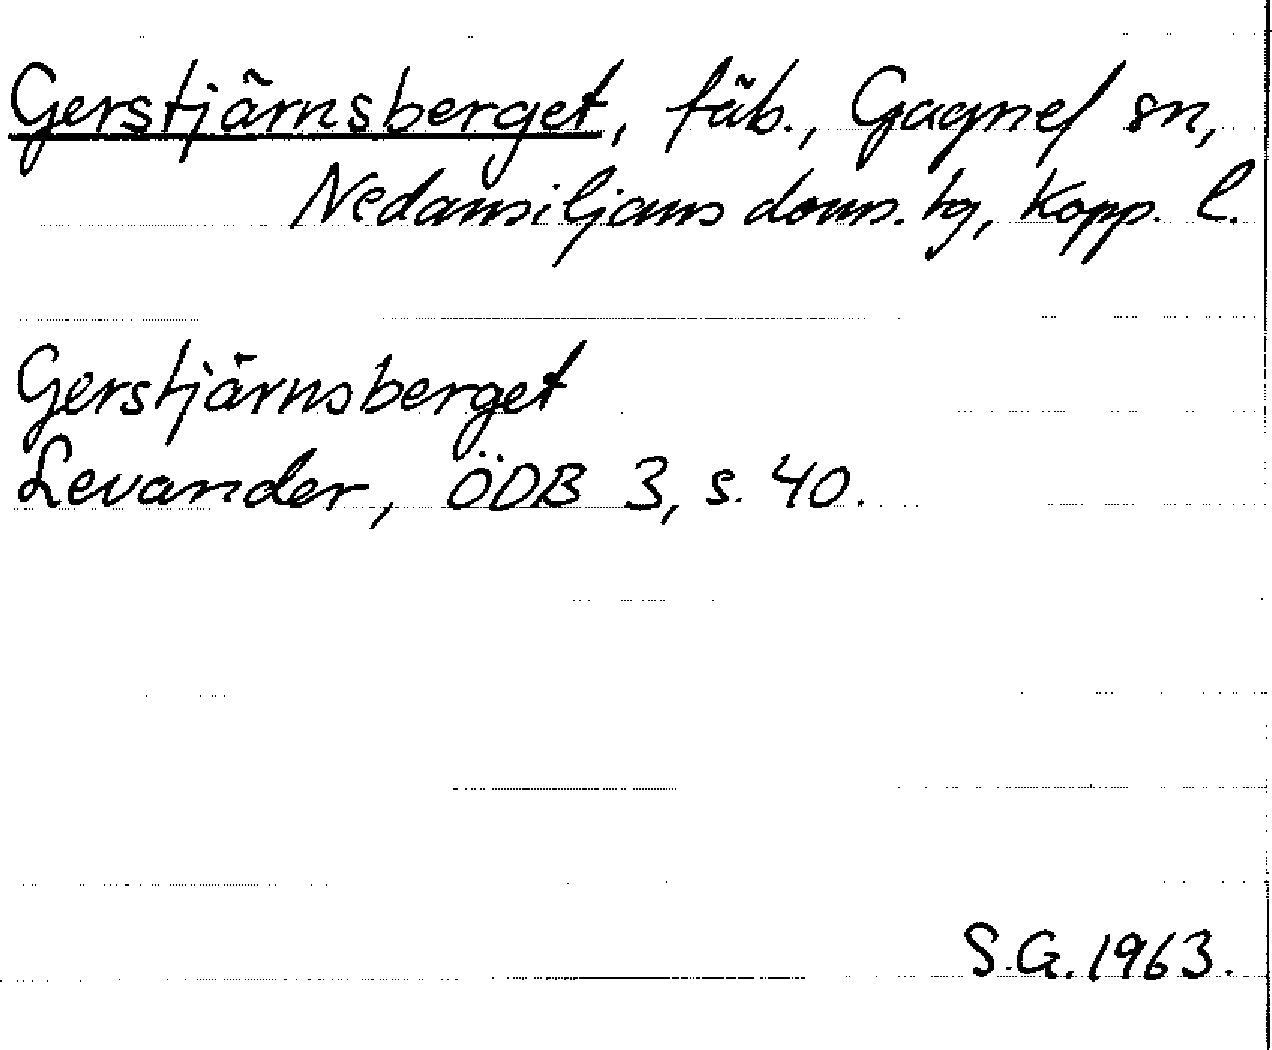 Gerstjärnsberget, fäb., Gagnef sn,
Nedansiljans doms. hg, Kopp. l.
Gerstjärnsberget
Levander, ÖDB 3, s. 40.
S.G. 1963.